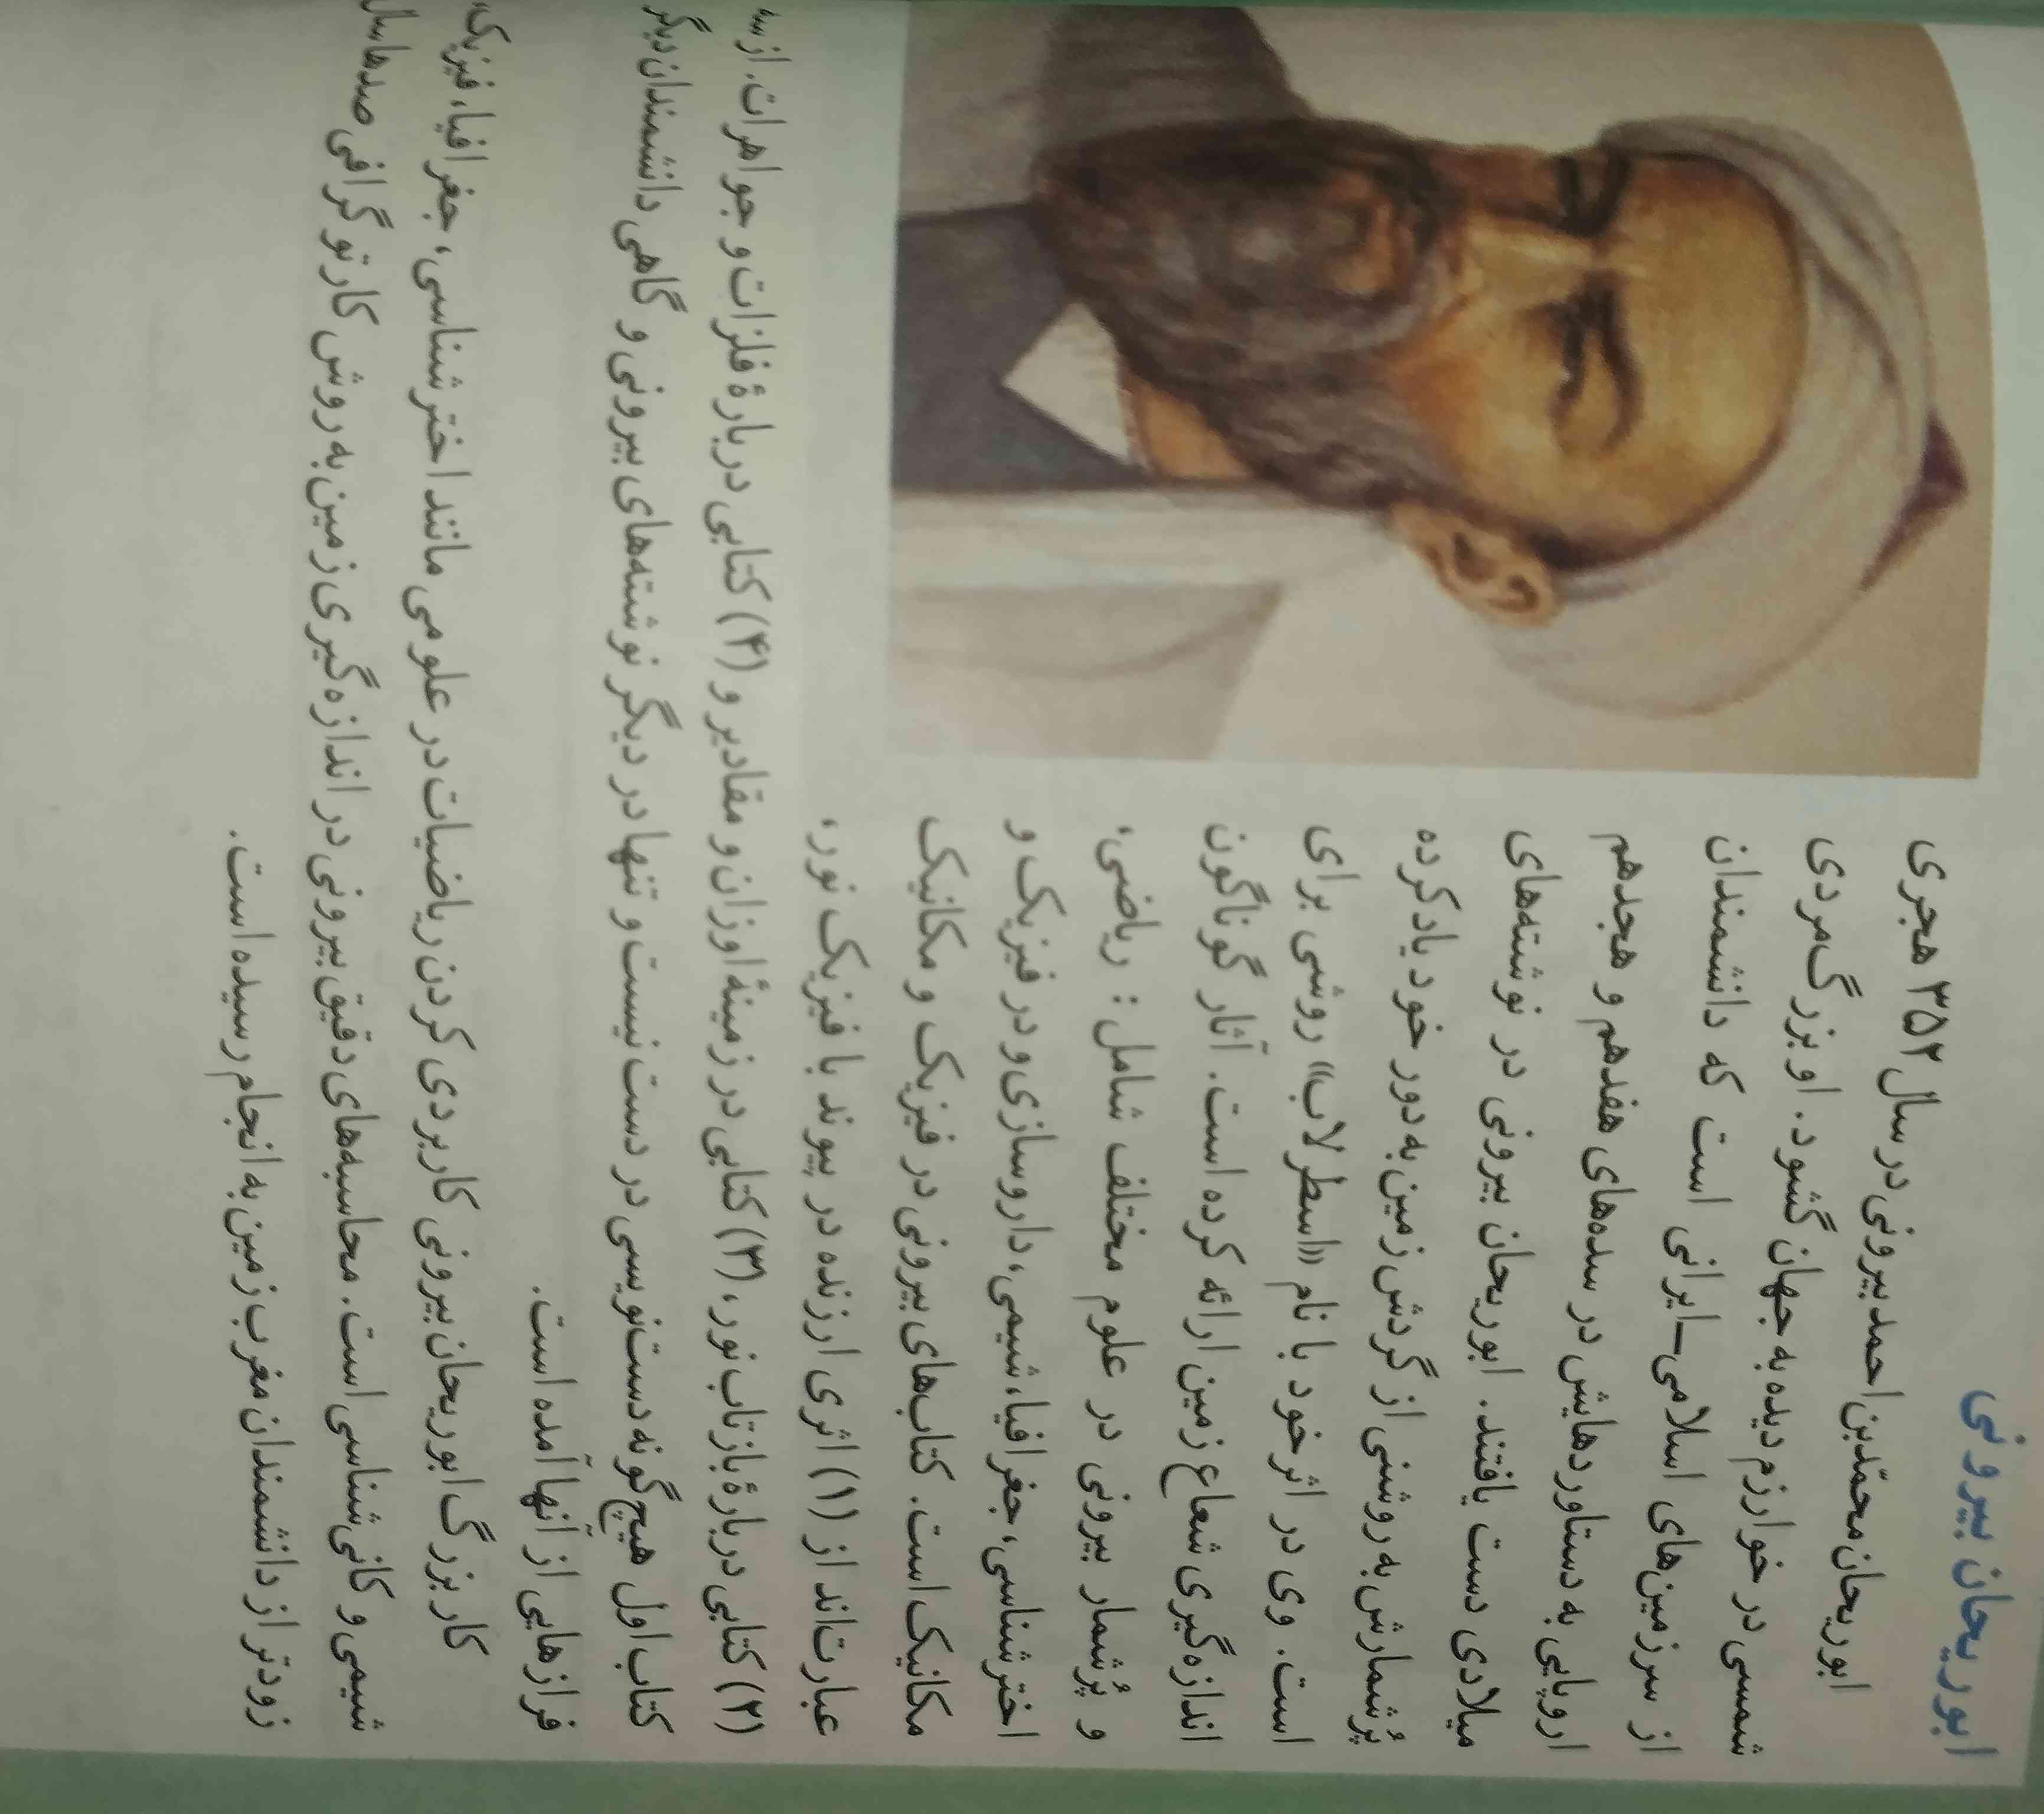 ابوریحان بیرونی
ابوریحان محمّدبن احمد بیرونی در سال ۳۵۲ هجری
شمسی در خوارزم دیده به جهان گشود. او بزرگ‌مردی
از سرزمین‌های اسلامی–ایرانی است که دانشمندان
اروپایی به دستاوردهایش در سده‌های هفدهم و هجدهم
میلادی دست یافتند. ابوریحان بیرونی در نوشته‌های
پُرشمارش به روشنی از گردش زمین به دور خود یاد کرده
است. وی در اثر خود با نام «اسطرلاب» روشی برای
اندازه‌گیری شعاع زمین ارائه کرده است. آثار گوناگون
و پُرشمار بیرونی در علوم مختلف شامل : ریاضی،
اخترشناسی، جغرافیا، شیمی، داروسازی و در فیزیک و
مکانیک است. کتاب‌های بیرونی در فیزیک و مکانیک
عبارت‌اند از (۱) اثری ارزنده در پیوند با فیزیک نور،
(۲) کتابی دربارهٔ بازتاب نور، (۳) کتابی در زمینهٔ اوزان و مقادیر و (۴) کتابی دربارهٔ فلزات و جواهرات. از سه
کتاب اول هیچ‌گونه دست‌نویسی در دست نیست و تنها در دیگر نوشته‌های بیرونی و گاهی دانشمندان دیگر
فرازهایی از آنها آمده است.
کار بزرگ ابوریحان بیرونی کاربردی کردن ریاضیات در علومی مانند اخترشناسی، جغرافیا، فیزیک،
شیمی و کانی‌شناسی است. محاسبه‌های دقیق بیرونی در اندازه‌گیری زمین به روش کارتوگرافی صدها سال
زودتر از دانشمندان مغرب زمین به انجام رسیده است.